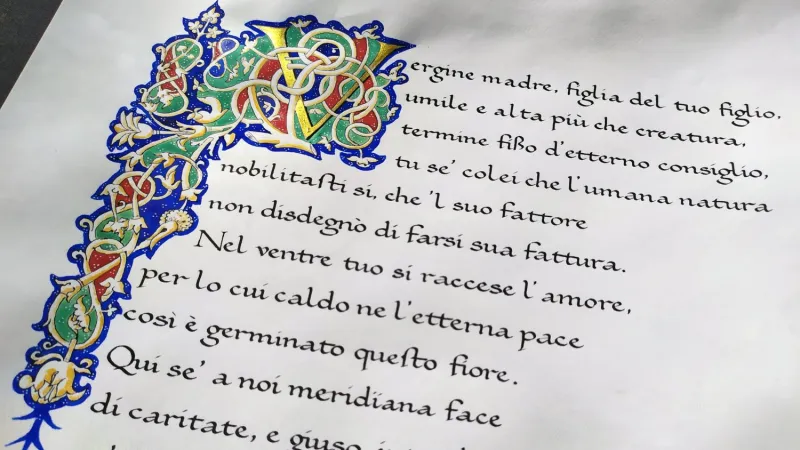 Vergine madre, figlia del tuo figlio,
umile e alta più che creatura,
termine fißo d'etterno consiglio,
tu se' colei che l'umana natura
nobilitaſti si, che 'l suo fattore
non disdegnò di farsi sua fattura.
Nel ventre tuo si raccese l'amore,
per lo cui caldo ne l'etterna pace
così è germinato queſto fiore.
Qui se' a noi meridiana face
di caritate, e giuso,